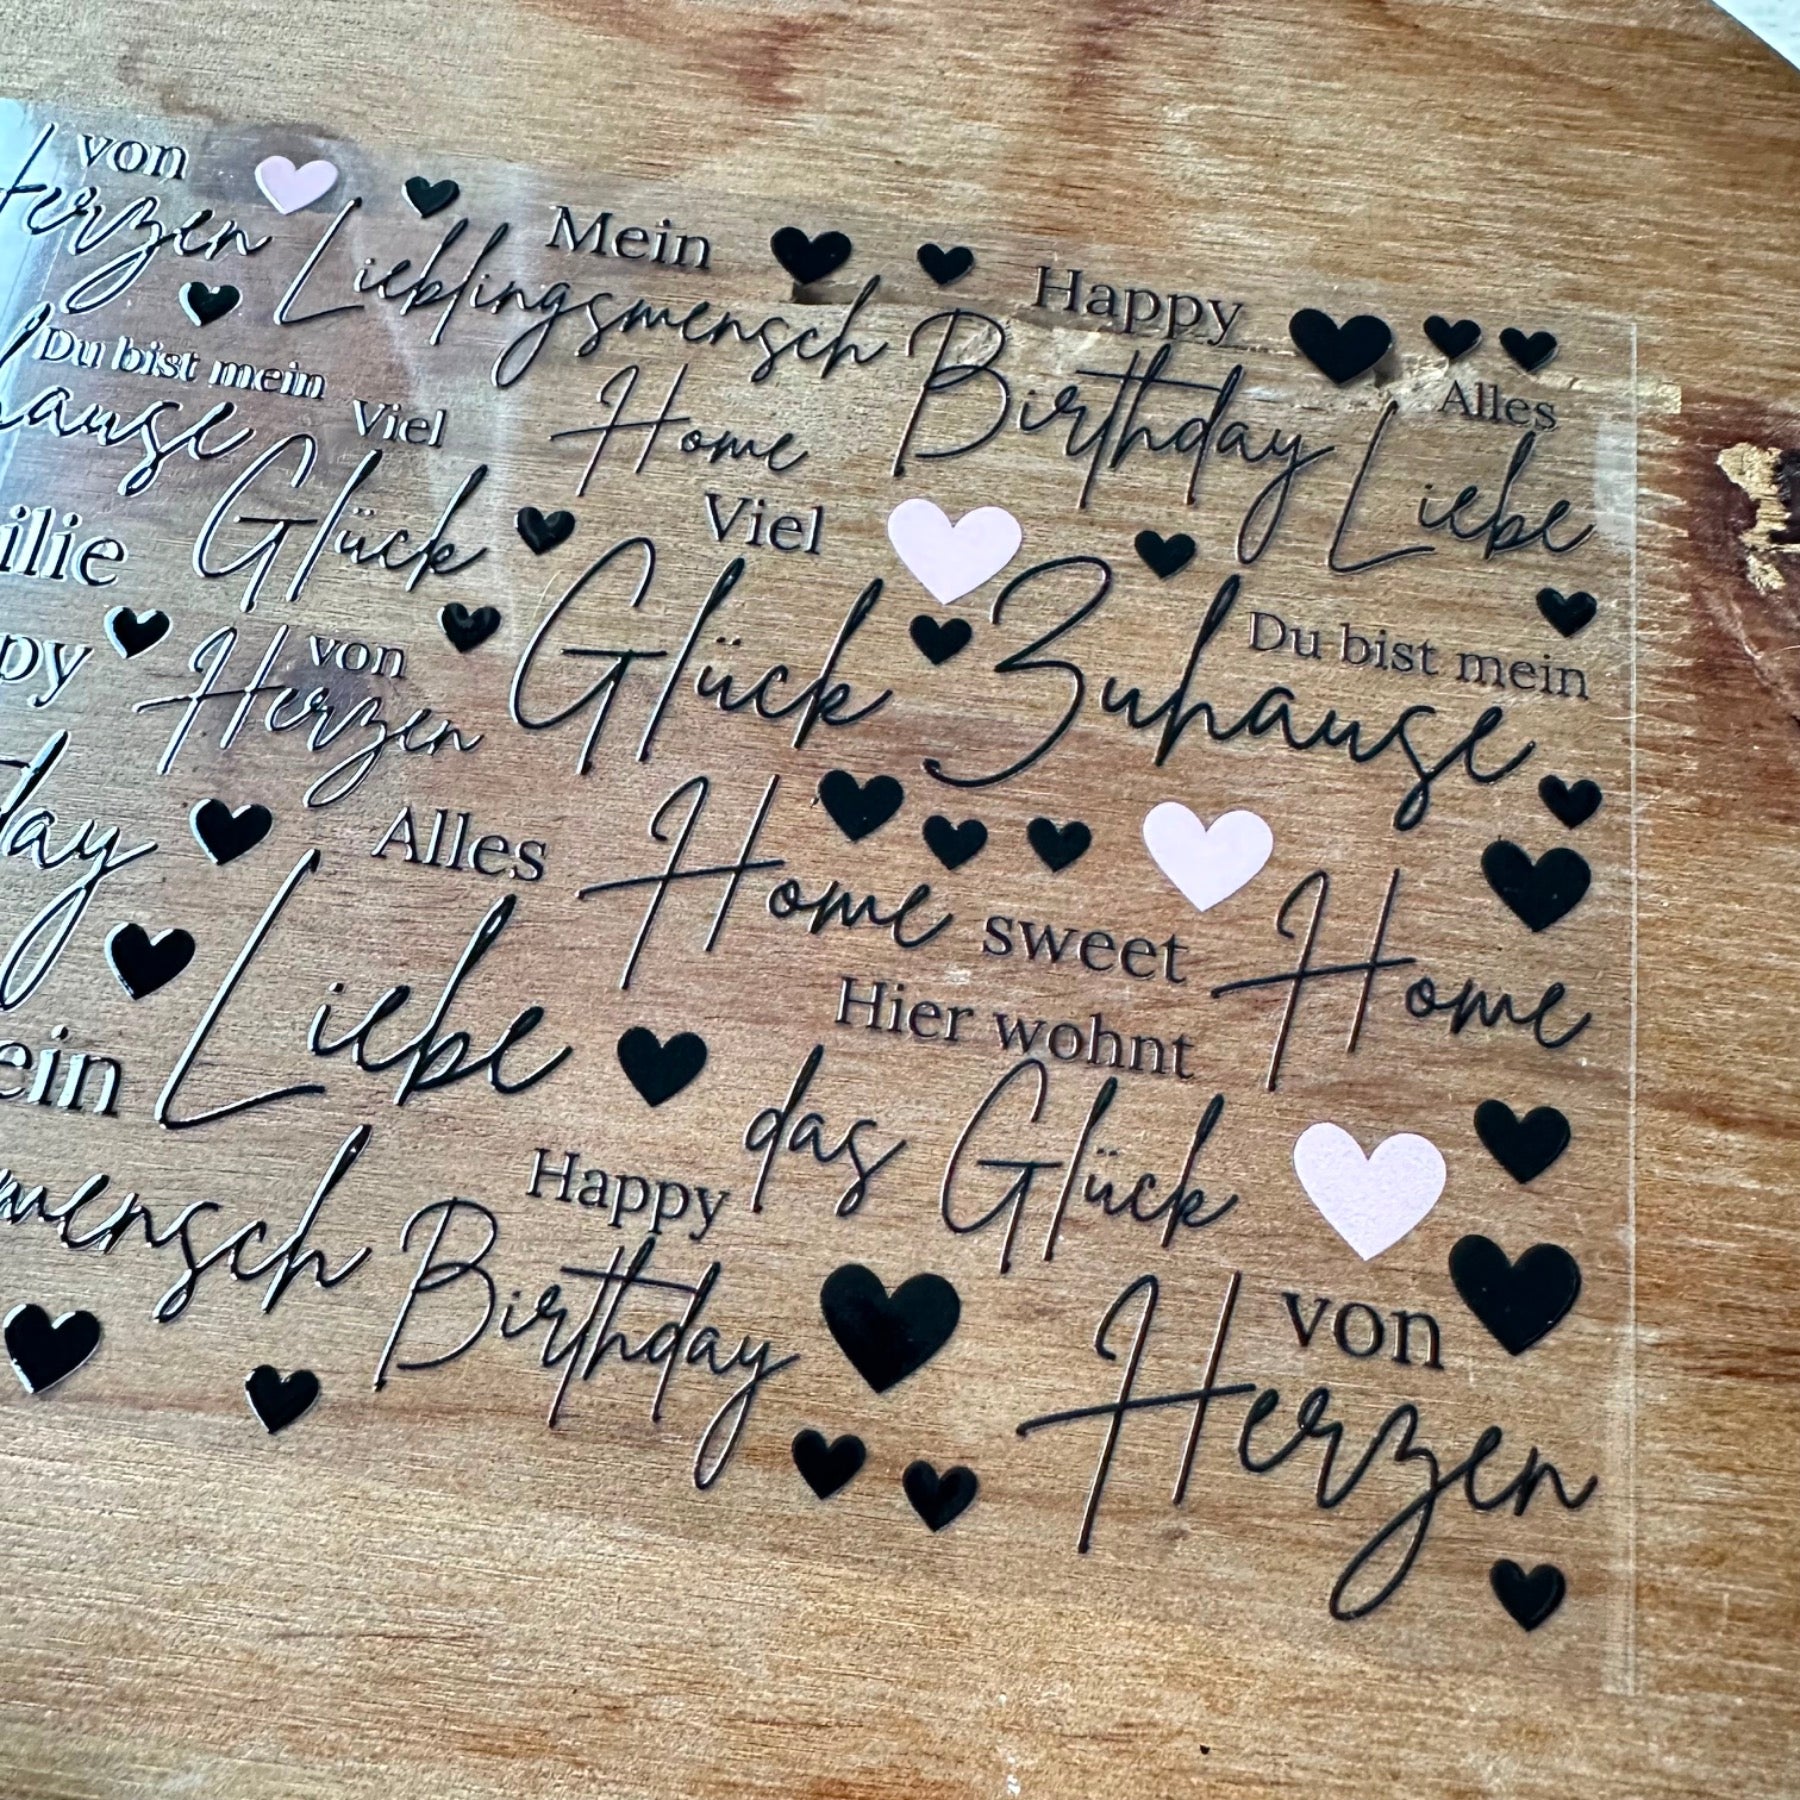 von
Herzen
Mein
Lieblingsmensch
Happy
Birthday
Alles
Liebe
Du bist mein
hause
Viel
Glück
Home
Viel
Glück
Du bist mein
Zuhause
ilie
py
von
Herzen
day
Alles
Liebe
Home sweet Home
Hier wohnt
das Glück
ein
mensch
Happy
Birthday
von
Herzen